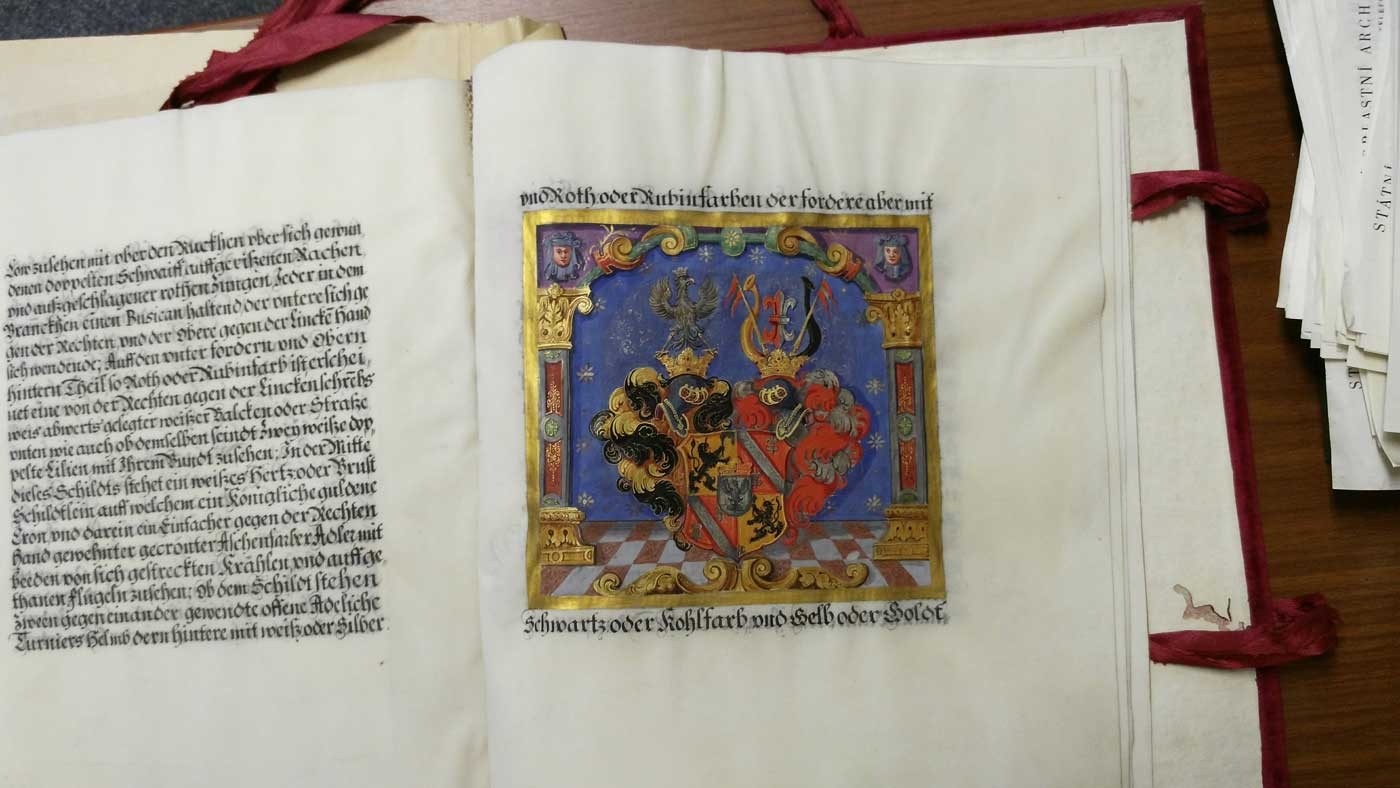 Löw zusehen mit vber den Ruckhen vber sich gewun
denen doppelten Schwaiff auffgerißenen Rachen,
vnd außgeschlagener rothen Zungen, Jeder in dem
Pranckhen einen Busican haltend, der vntere sich ge
gen der Rechten, vnd der Obere gegen der Linckē Hand
sich wendende; Auff den vnter fordern vnd Obern
hintern Theil so Roth oder Rubinfarb ist erschei,
net eine von der Rechten gegen der Lincken schrebs
weis abwerts gelegter weißer Balcken oder Straße
vnten wie auch ob demselben seindt zwey weiße dop,
pelte Lilien mit Ihrem Bundt zusehen; In der Mitte
dieses Schildts stehet ein weißes Hertz oder Brust
Schildtlein auff welchem ein Königliche guldene
Cron, vnd darein ein Einfacher gegen der Rechten
Hand gewehnter gecronter Aschenfarber Adler mit
beeden von sich gestreckten Krählen, vnd auffge,
thanen Flügeln zusehen; Ob dem Schildt stehen
zween gegen einander gewendte offene Adeliche
Turniers Helmb dern hintere mit weiß oder Silber
vnd Roth oder Rubinfarben der fordere aber mit
Schwartz oder Kohlfarb vnd Gelb oder Goldt,
STÁTNÍ OBLASTNÍ ARCH